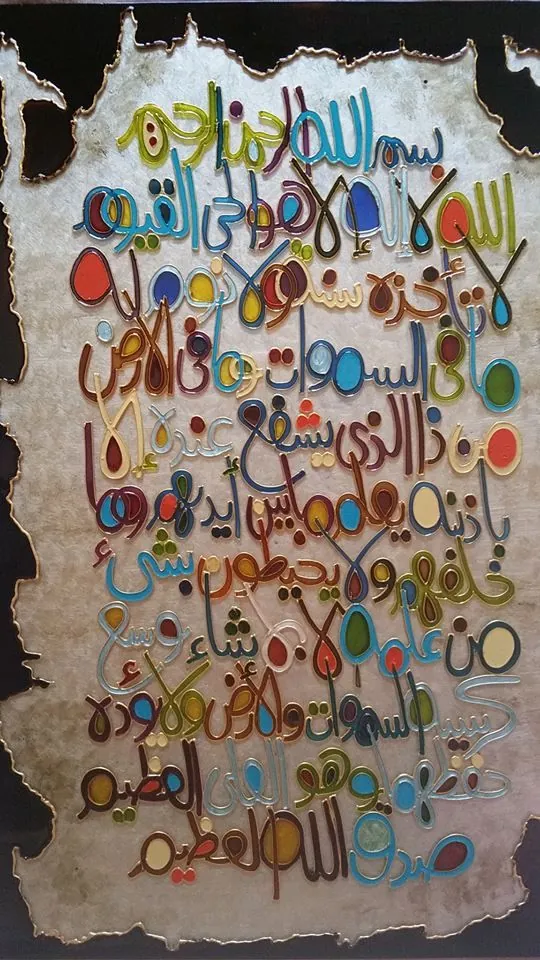 بسم الله الرحمن الرحيم
الله لا إله إلا هو الحي القيوم
لا تأخذه سنة ولا نوم له
ما في السموات وما في الأرض
من ذا الذي يشفع عنده إلا
بإذنه يعلم ما بين أيديهم وما
خلفهم ولا يحيطون بشئ
من علمه إلا بما شاء وسع
كرسيه السموات والأرض ولا يؤده
حفظهما وهو العلي العظيم
صدق الله العظيم